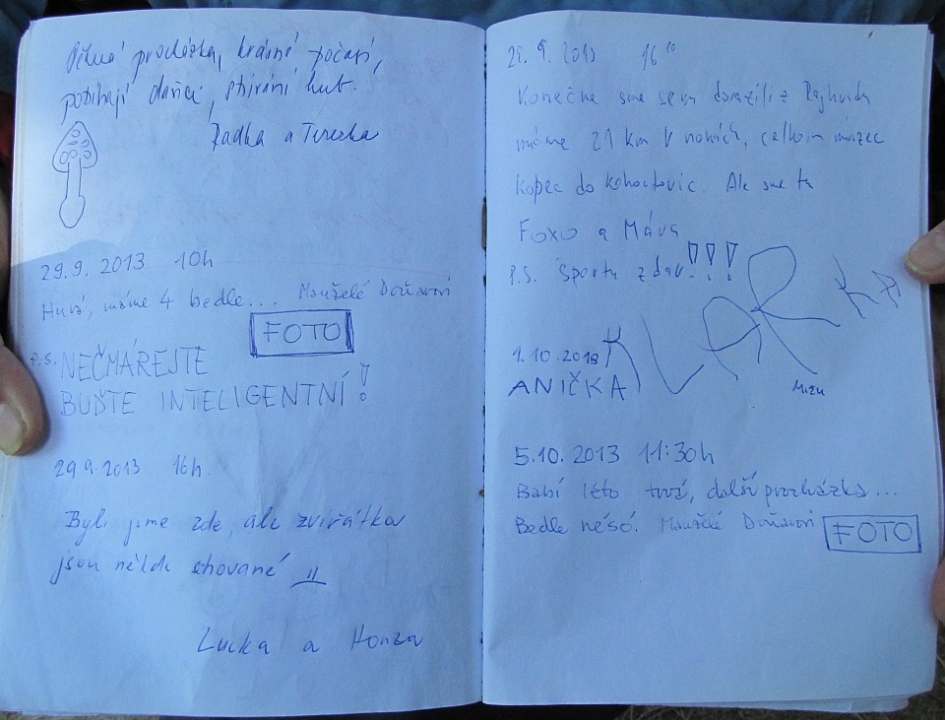 Pěkná procházka, krásné počasí,
pobíhají daňci, sbírání hub.
Radka a Terezka
29.9. 2013 10h
Hurá, máme 4 bedle... Manželé
FOTO
P.S. NEČMÁREJTE
BUĎTE INTELIGENTNÍ!
29.9.2013 16h.
Byli jsme zde, ale zvířátka
jsou někde chované
Lucka a Honza
29. 9. 2013 16¹⁰
Konečne sme sem dorazili z
máme 21 km v nohách, celkom
kopec do Kohoutovic. Ale sme tu
Foxo a
P.S. Športu zdar!!!
KLÁRKA
1.10.2013
ANIČKA
5.10. 2013 11:30h
Babí léto trvá, další procházka...
Bedle nésó. Manželé
FOTO